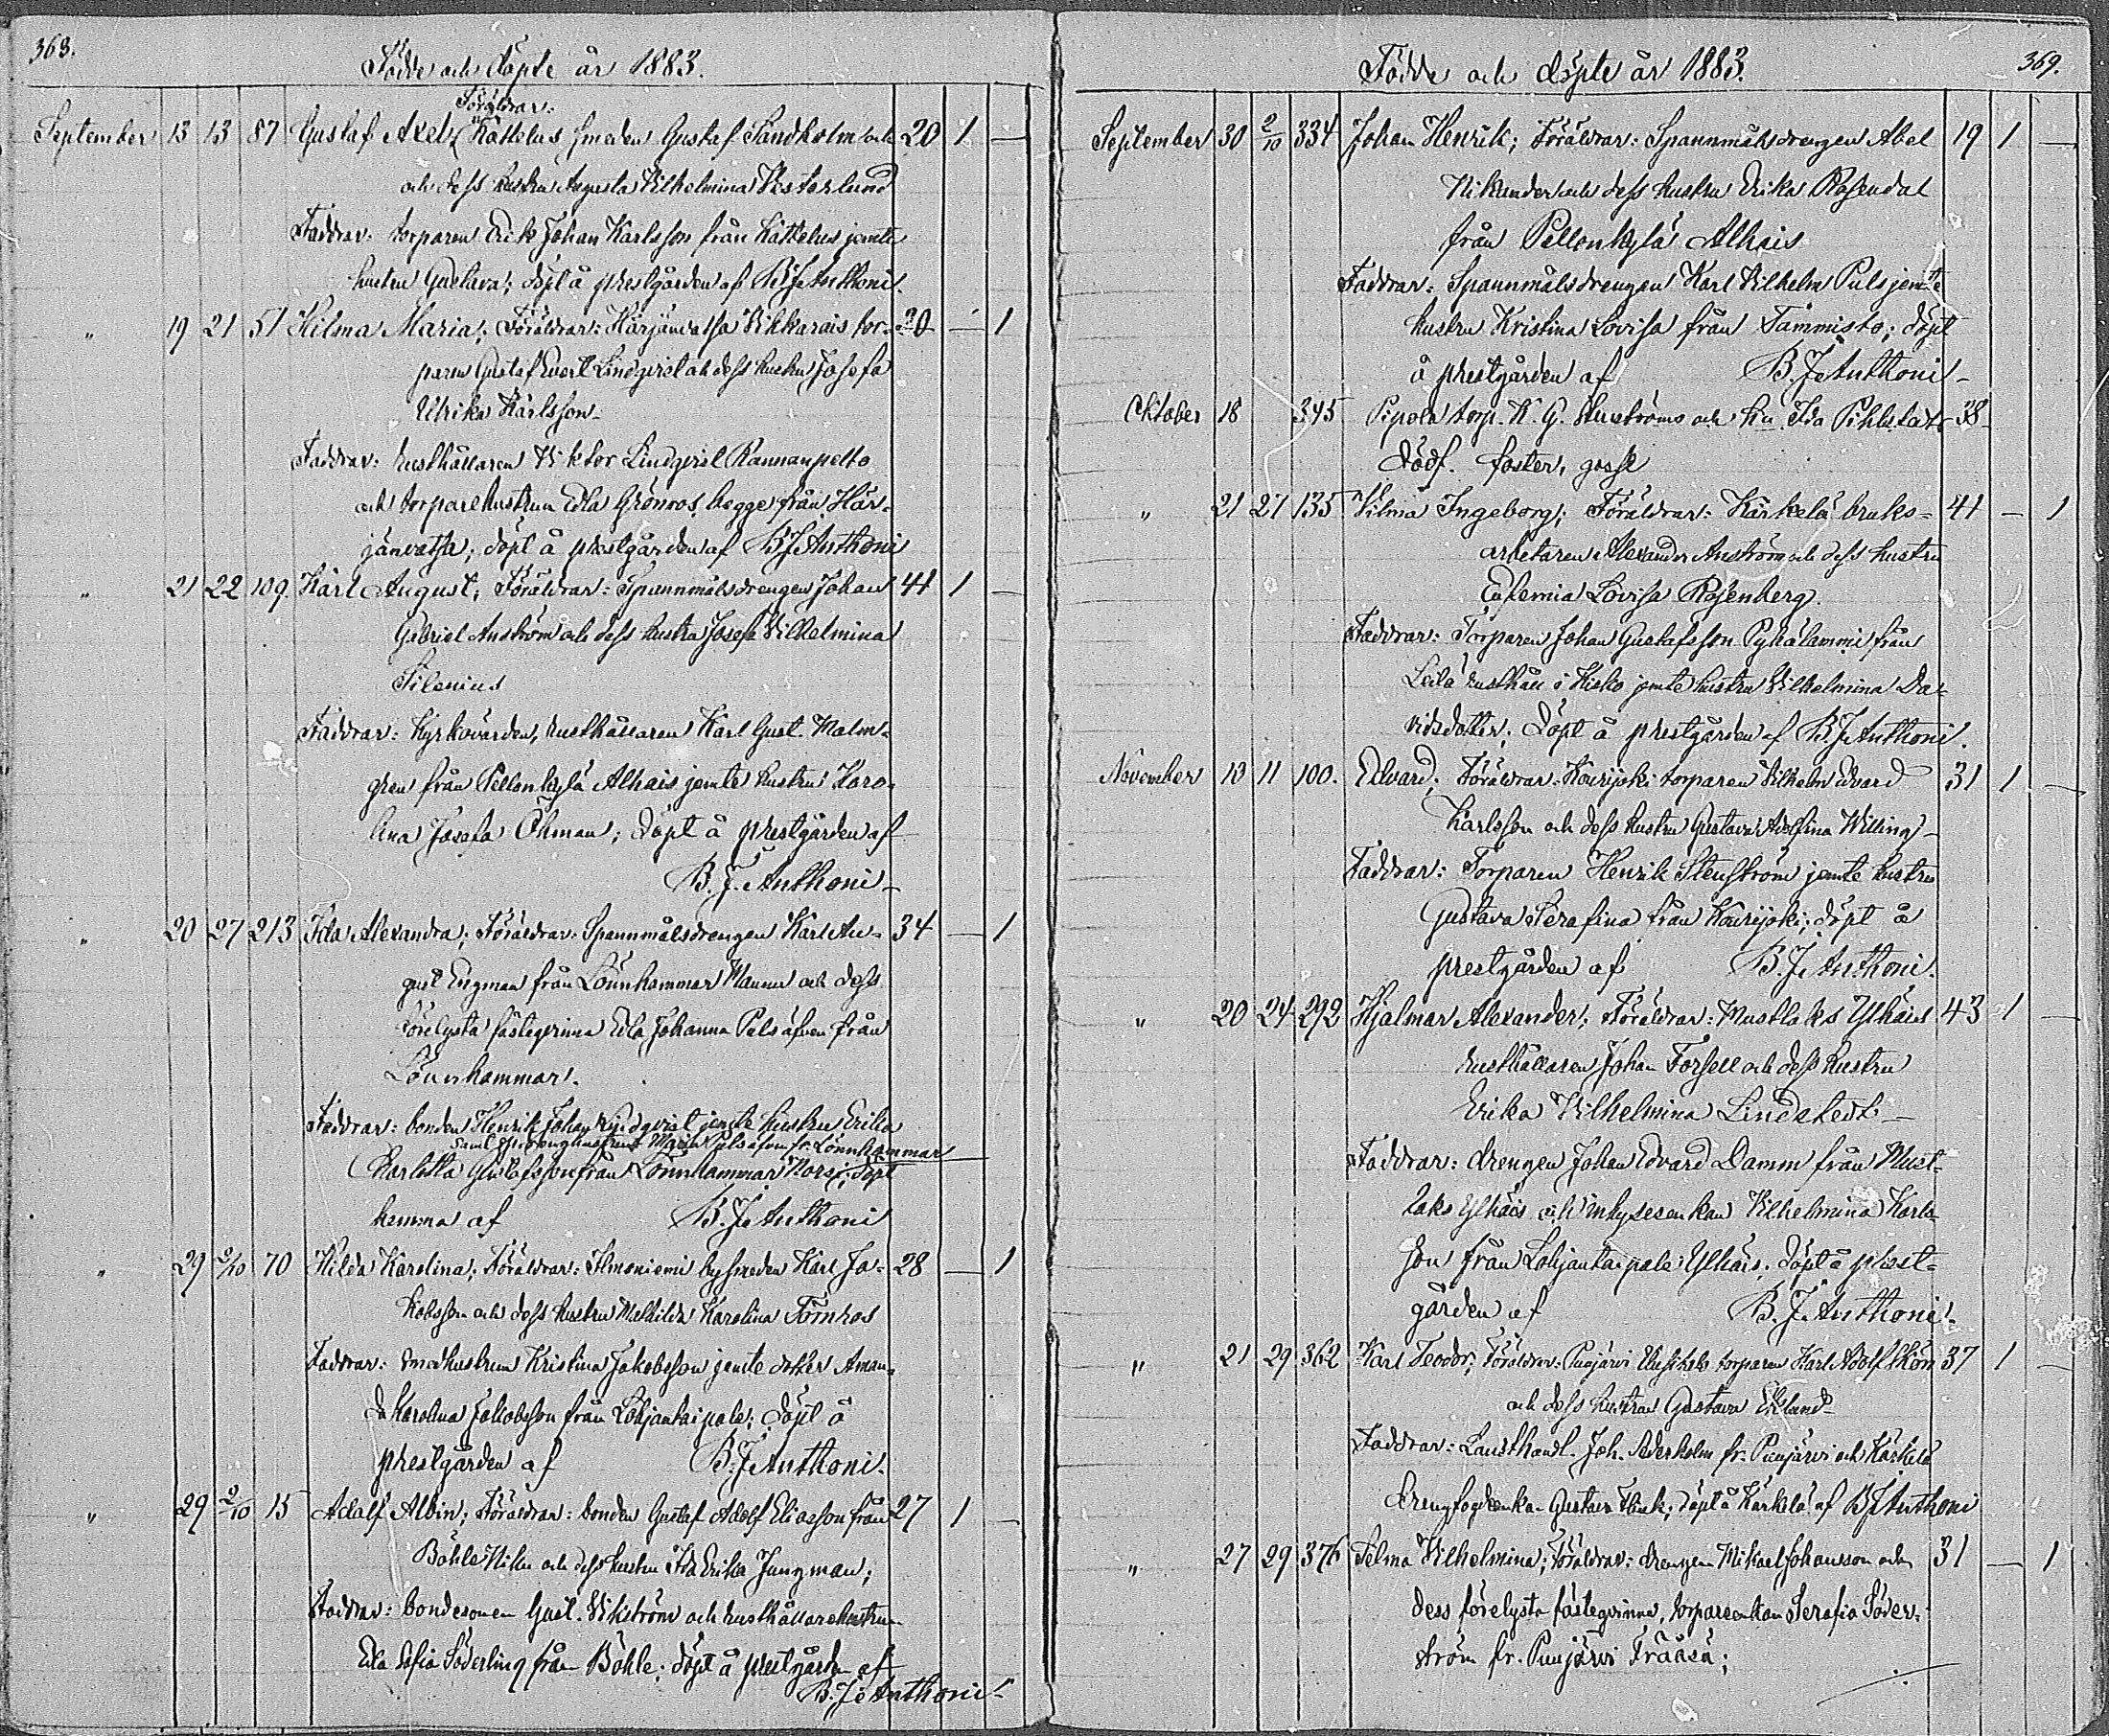 368.
Födde och döpte år 1883.
Föräldrar:
September 13 13 87 Gustaf Axel; Kattelus smeden Gustaf Sandholm och 20 1 —
och dess hustru Augusta Vilhelmina Vesterlund
Faddrar: torparen Erik Johan Karlsson från Kattelus jemte
hustru Gustava; döpt å prestgården af B. J. Anthoni.
" 19 21 51 Hilma Maria; Föräldrar: Härjänvatsa Vikkarais tor- 20 — 1
paren Gustaf Evert Lindqvist och dess hustru Josefa
Ulrika Karlsson
Faddrar: rusthållaren Viktor Lindqvist Rannanpelto
och torparehustrun Edla Grönros, begge från Här-
jänvatsa; döpt å prestgården af B. J. Anthoni
" 21 22 109 Karl August; Föräldrar: Spannmålsdrengen Johan 44 1 —
Gabriel Anström och dess hustru Josefa Vilhelmina
Silenius
Faddrar: Kyrkovärden, rusthållaren Karl Gust. Malm-
gren från Pellonkylä Alhais jemte hustru Karo-
lina Josefa Öhman; döpt å prestgården af
B. J. Anthoni
" 20 27 213 Ida Alexandra; Föräldrar: Spannmålsdrengen Karl Au- 34 — 1
gust Engman från Lönnhammar Mannu och dess
förelysta fästeqvinna Edla Johanna Pals äfven från
Lönnhammar.
Faddrar: bonden Henrik Johan Lindqvist jemte hustru Erika
samt hustrun Maria Pals äfven fr. Lönnhammar
Karlotta Gustafsson från Lönnhammar Kors; döpt
hemma af B. J. Anthoni
" 29 2/10 70 Hilda Karolina; Föräldrar: Ilmoniemi bysmeden Karl Ja- 28 — 1
kobsson och dess hustru Mathilda Karolina Törnros
Faddrar: smedhustrun Kristina Jakobsson jemte dotter Aman-
da Karolina Jakobsson från Lohjantaipale; döpt å
prestgården af B. J. Anthoni.
" 29 2/10 15 Adolf Albin; Föräldrar: bonden Gustaf Adolf Eliasson från 27 1 —
Böhle Niku och dess hustru Ida Erika Jungman;
Faddrar: bondesonen Gust. Vikström och rusthållarehustrun
Edla Sofia Söderling från Böhle; döpt å prestgården af
B. J. Anthoni.
369.
Födde och döpte år 1883.
September 30 2/10 334 Johan Henrik; Föräldrar: Spannmålsdrengen Abel 19 1 —
Nikander och dess hustru Erika Rosendal
från Pellonkylä Alhais
Faddrar: Spannmålsdrengen Karl Vilhelm Puls jemte
hustru Kristina Lovisa från Tammisto; döpt
å prestgården af B. J. Anthoni
Oktober 18 345 Pipola torp. K. G. och hu Ida 38
Dödf. foster, gosse
" 21 27 135 Vilma Ingeborg; Föräldrar: Kärkelä bruks- 41 — 1
arbetaren Alexander Anström och dess hustru
Eufemia Lovisa Rosenberg.
Faddrar: Torparen Johan Gustafsson Pyhälammi från
Leilä rusthåll i Kisko jemte hustru Vilhelmina Da-
vidsdotter; Döpt å prestgården af B. J. Anthoni.
November 10 11 100. Edvard; Föräldrar: Kourjoki torparen Vilhelm Edvard 31 1 —
Karlsson och dess hustru Gustava Adolfina Willing
Faddrar: Torparen Henrik Stenström jemte hustru
Gustava Serafina från Kourijoki; döpt å
prestgården af B. J. Anthoni.
" 20 24 292 Hjalmar Alexander; Föräldrar: Mustlaks Ylhäis 43 1 —
rusthållaren Johan Forsell och dess hustru
Erika Vilhelmina Lindstedt
Faddrar: drengen Johan Edvard Damm från Must-
laks Ylhäis och inhysesenkan Vilhelmina Karls-
son från Lohjantaipale Ylhäis; döpt å prest-
gården af B. J. Anthoni.
" 21 29 362 Karl Teodor; Föräldrar: Puujärvi torparen Karl Adolf 37 1 —
och dess hustru Gustava Eklund
Faddrar: Lanthandl. Joh. fr. Puujärvi och Kärkelä
drengfogdeenkan Gustava; döpt å Kärkelä af B. J. Anthoni
" 27 29 376 Selma Vilhelmina; Föräldrar: drengen Mikael Johansson och 31 — 1
dess förelysta fästeqvinna, torpareenkan Serafia Söder-
ström fr. Puujärvi Frääsä;